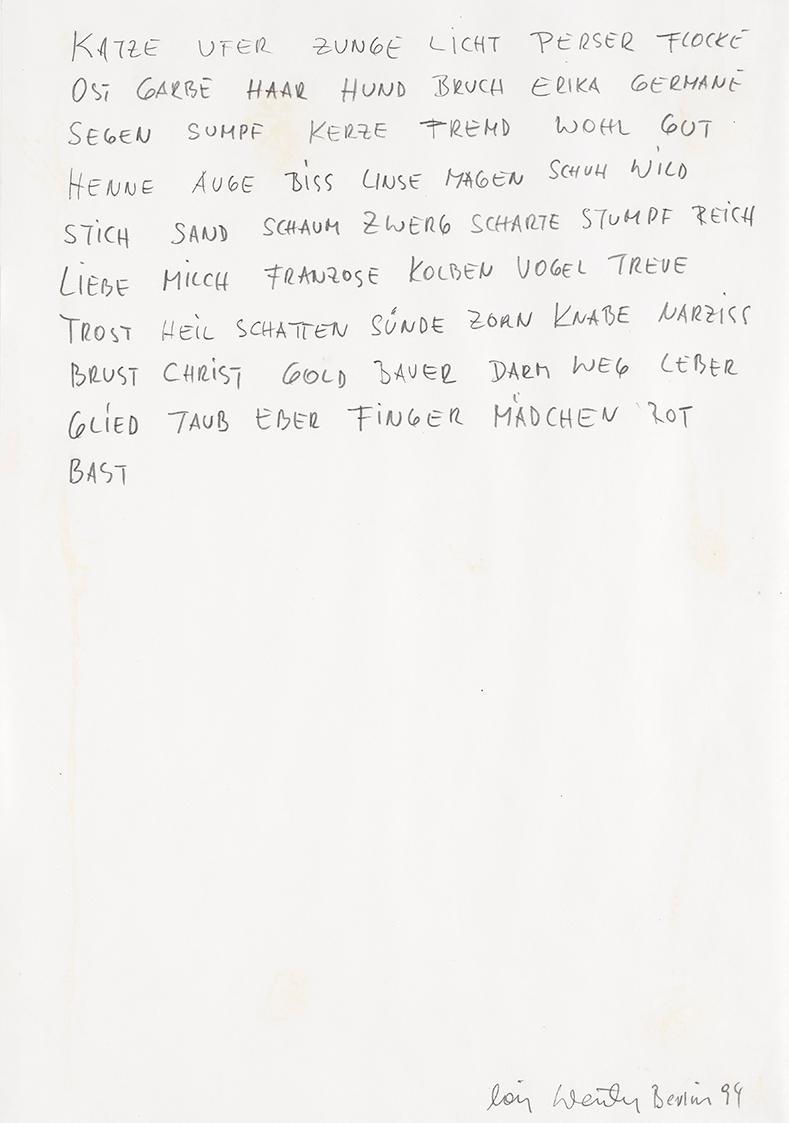 KATZE UFER ZUNGE LICHT PERSER FLOCKE
OST GARBE HAAR HUND BRUCH ERIKA GERMANE
SEGEN SUMPF KERZE FREMD WOHL GUT
HENNE AUGE BISS LINSE MAGEN SCHUH WILD
STICH SAND SCHAUM ZWERG SCHARTE STUMPF REICH
LIEBE MILCH FRANZOSE KOLBEN VOGEL TREUE
TROST HEIL SCHATTEN SÜNDE ZORN KNABE NARZISS
BRUST CHRIST GOLD BAUER DARM WEG LEBER
GLIED TAUB EBER FINGER MÄDCHEN ROT
BAST
Berlin 94